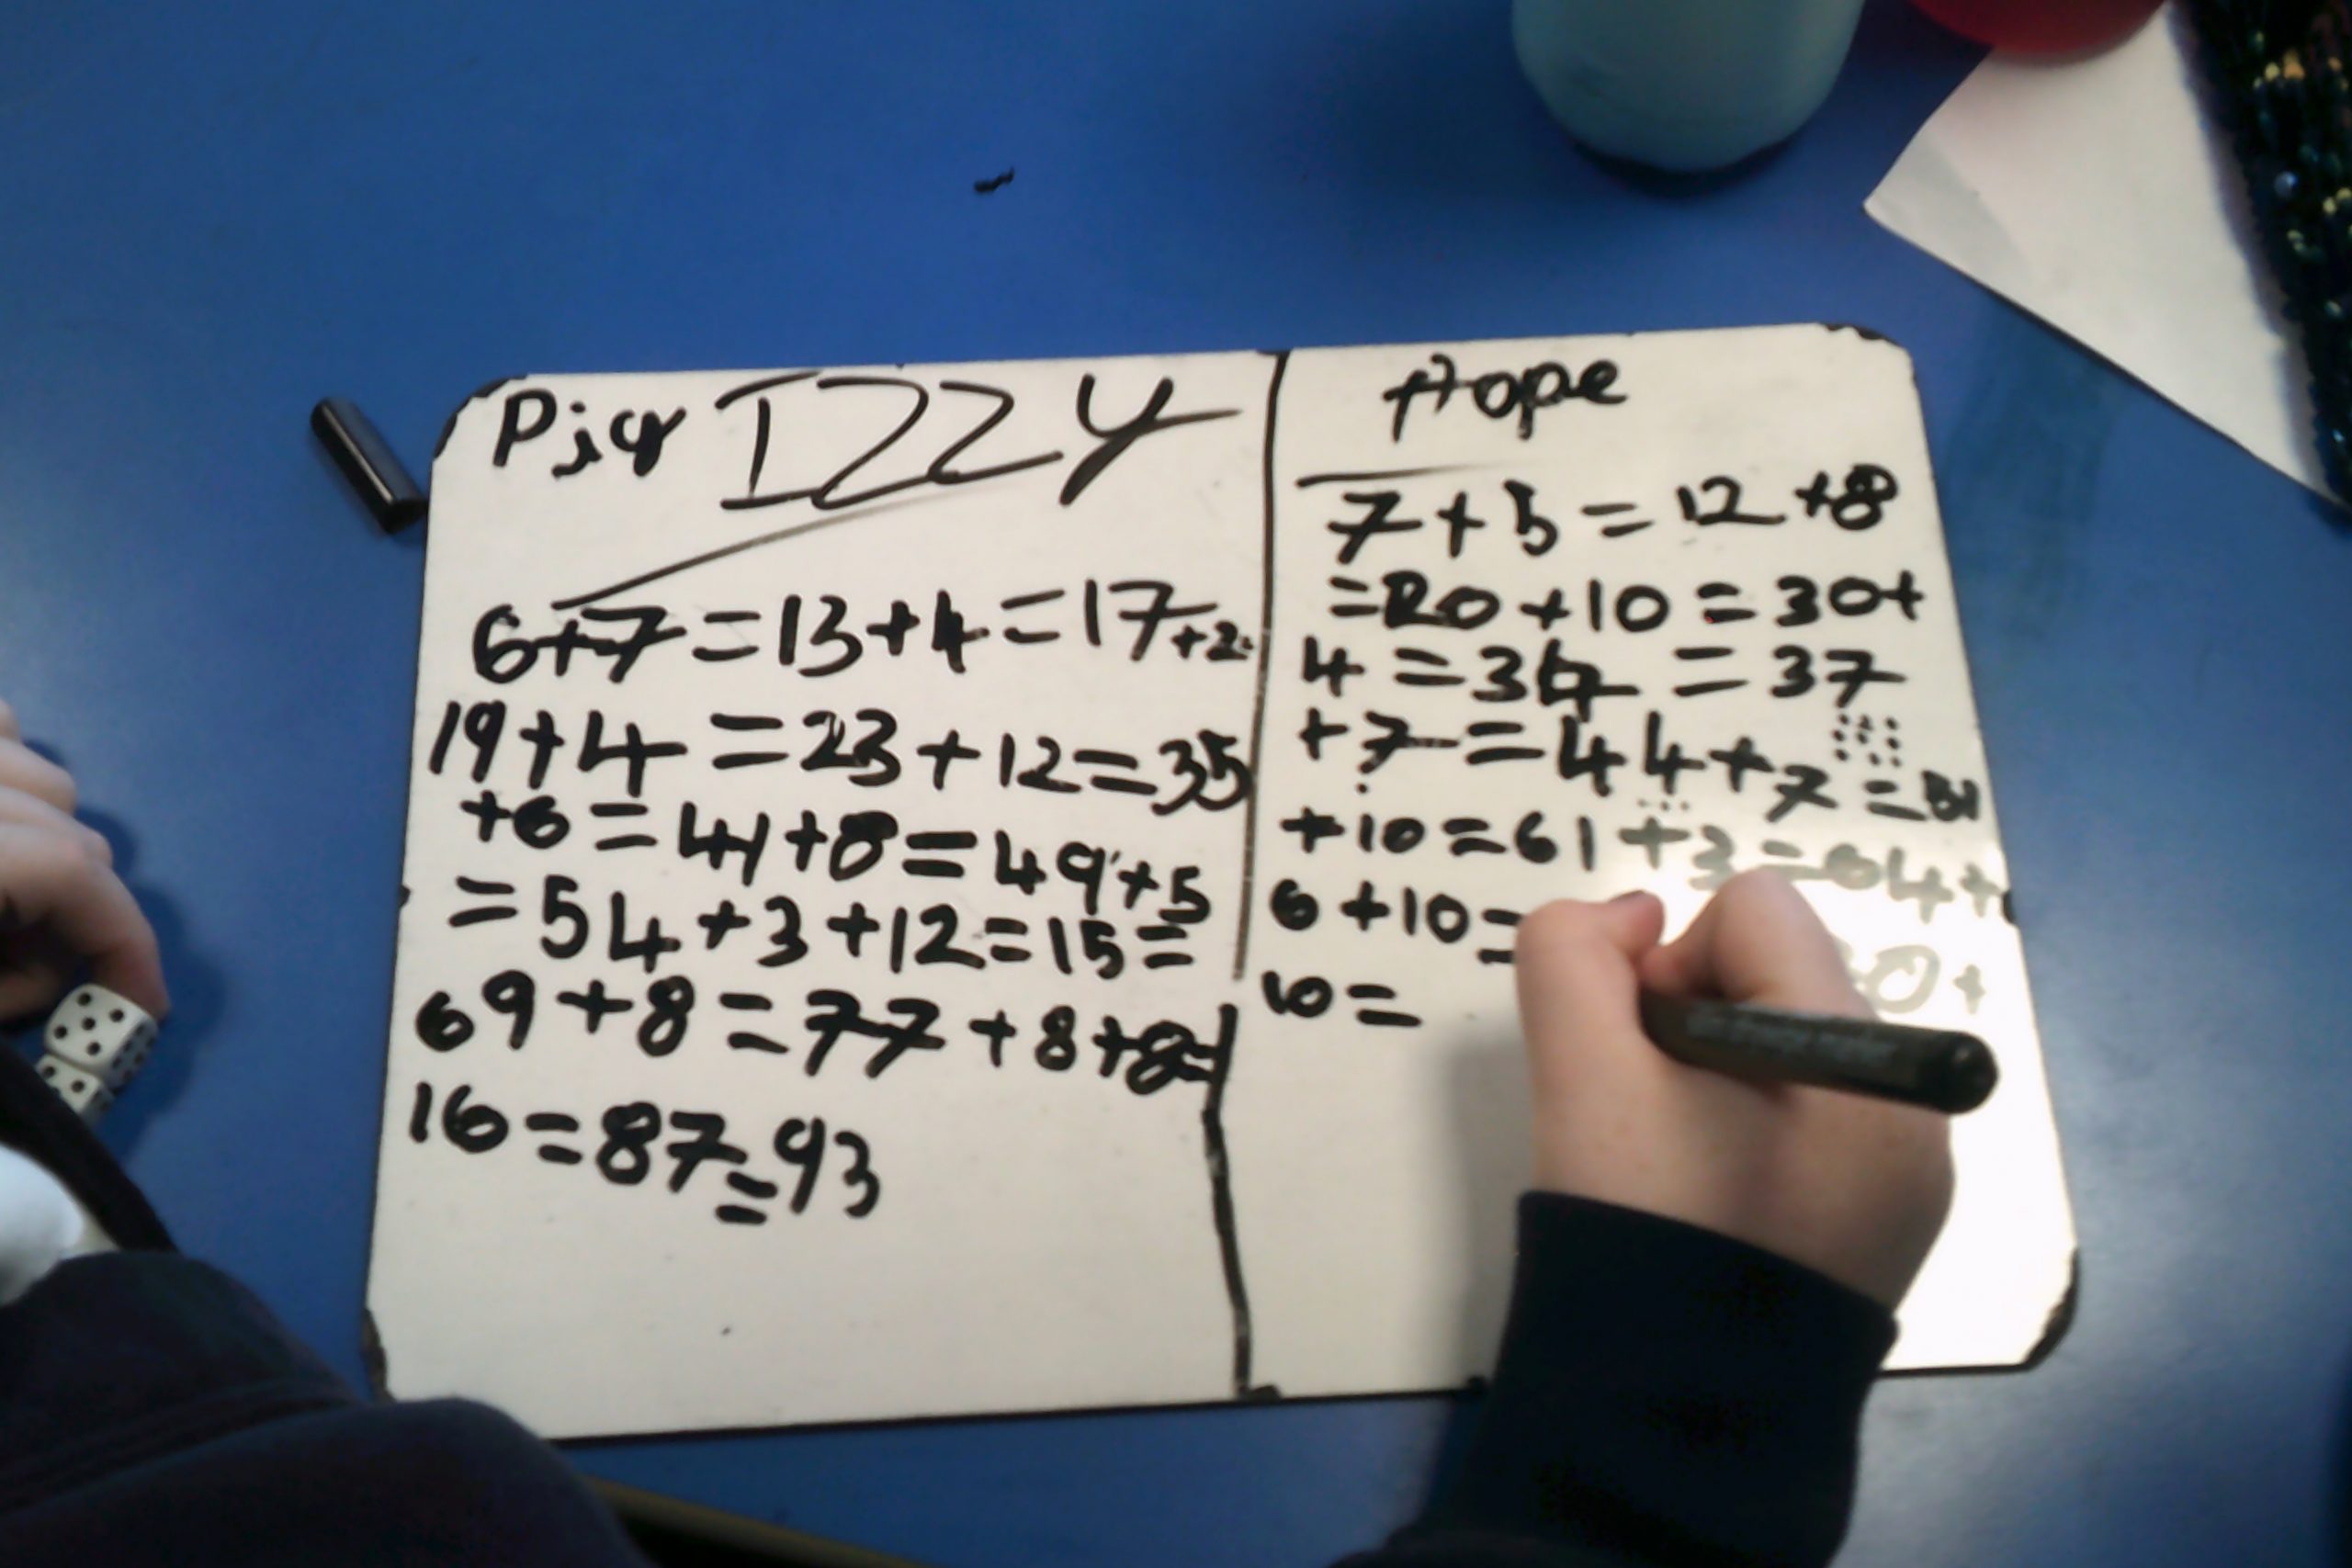 Pig IZZY
6+7=13+4=17+2=
19+4=23+12=35
+6=41+8=49+5
=54+3+12=15=
69+8=77+8+8=
16=87=93
Hope
7+5=12+8
=20+10=30+
4=34=37
+7=44+7=51
+10=61+3=64+
6+10=
10=
0+